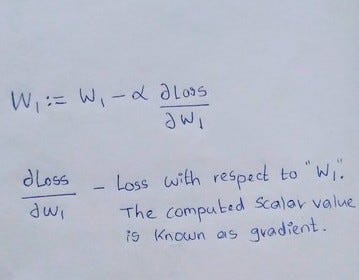 W₁ := W₁ - α ∂Loss
∂W₁
∂Loss - Loss with respect to "W₁".
∂W₁ The computed Scalar value
is known as gradient.